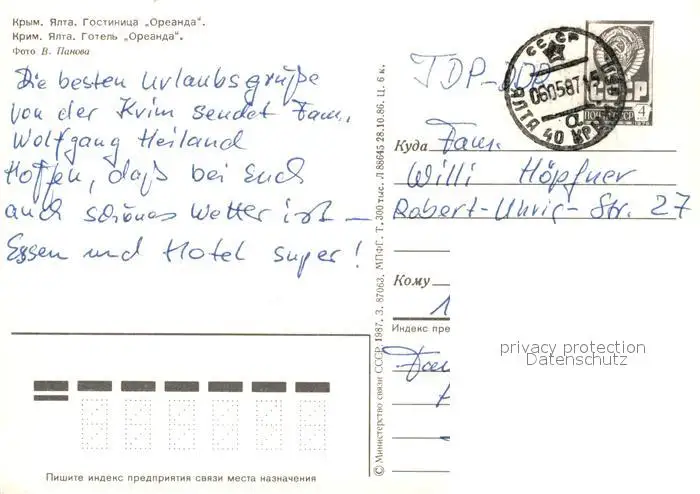 Крым. Ялта. Гостиница „Ореанда“.
Крим. Ялта. Готель „Ореанда“.
Фото В. Панова
Die besten Urlaubsgrüße
von der Krim sendet Fam.
Wolfgang Heiland
Hoffen, daß bei Euch
auch schönes Wetter ist –
Essen und Hotel super!
Пишите индекс предприятия связи места назначения
© Министерство связи СССР, 1987. З. 87063. МПФГ. Т. 300 тыс. Л 88645 28.10.86. Ц. 6 к.
СССР
060587
ЯЛТА
СССР
ПОЧТА СССР
4
Куда Fam.
Willi Höpfner
Robert-Uhrig-Str. 27
Кому
Индекс пре
Fam
privacy protection
Datenschutz